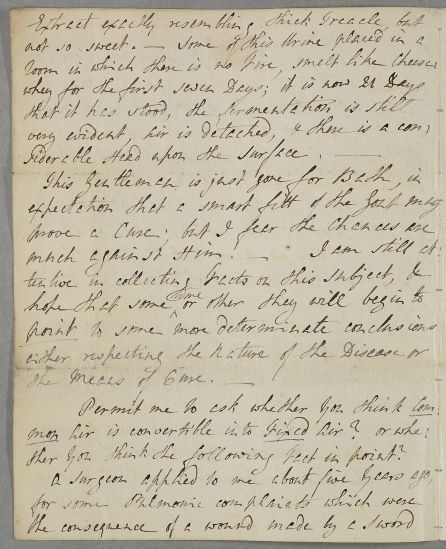 Extract exactly resembling thick Treacle, but
not so sweet. — Some of this Urine placed in a
Room in which there is no Fire, smelt like cheese
whey for the first seven Days; it is now 21 Days
that it has stood, the fermentation is still
very evident, Air is detached, & there is a con:
siderable Head upon the Surface. —
This Gentleman is just gone for Bath, in
expectation that a smart fitt of the Gout may
prove a Cure; but I fear the Chances are
much against Him. — I am still at:
tentive in collecting Facts on this subject, &
hope that some time or other they will begin to
point to some more determinate conclusions
either respecting the Nature of the Disease or
the Means of Cure. —
Permit me to ask whether You think Com:
mon Air is convertible into Fixed Air? or whe:
ther You think the following Fact in point?
A Surgeon applied to me about five Years ago,
for some Pulmonic complaints which were
the consequence of a wound made by a Sword